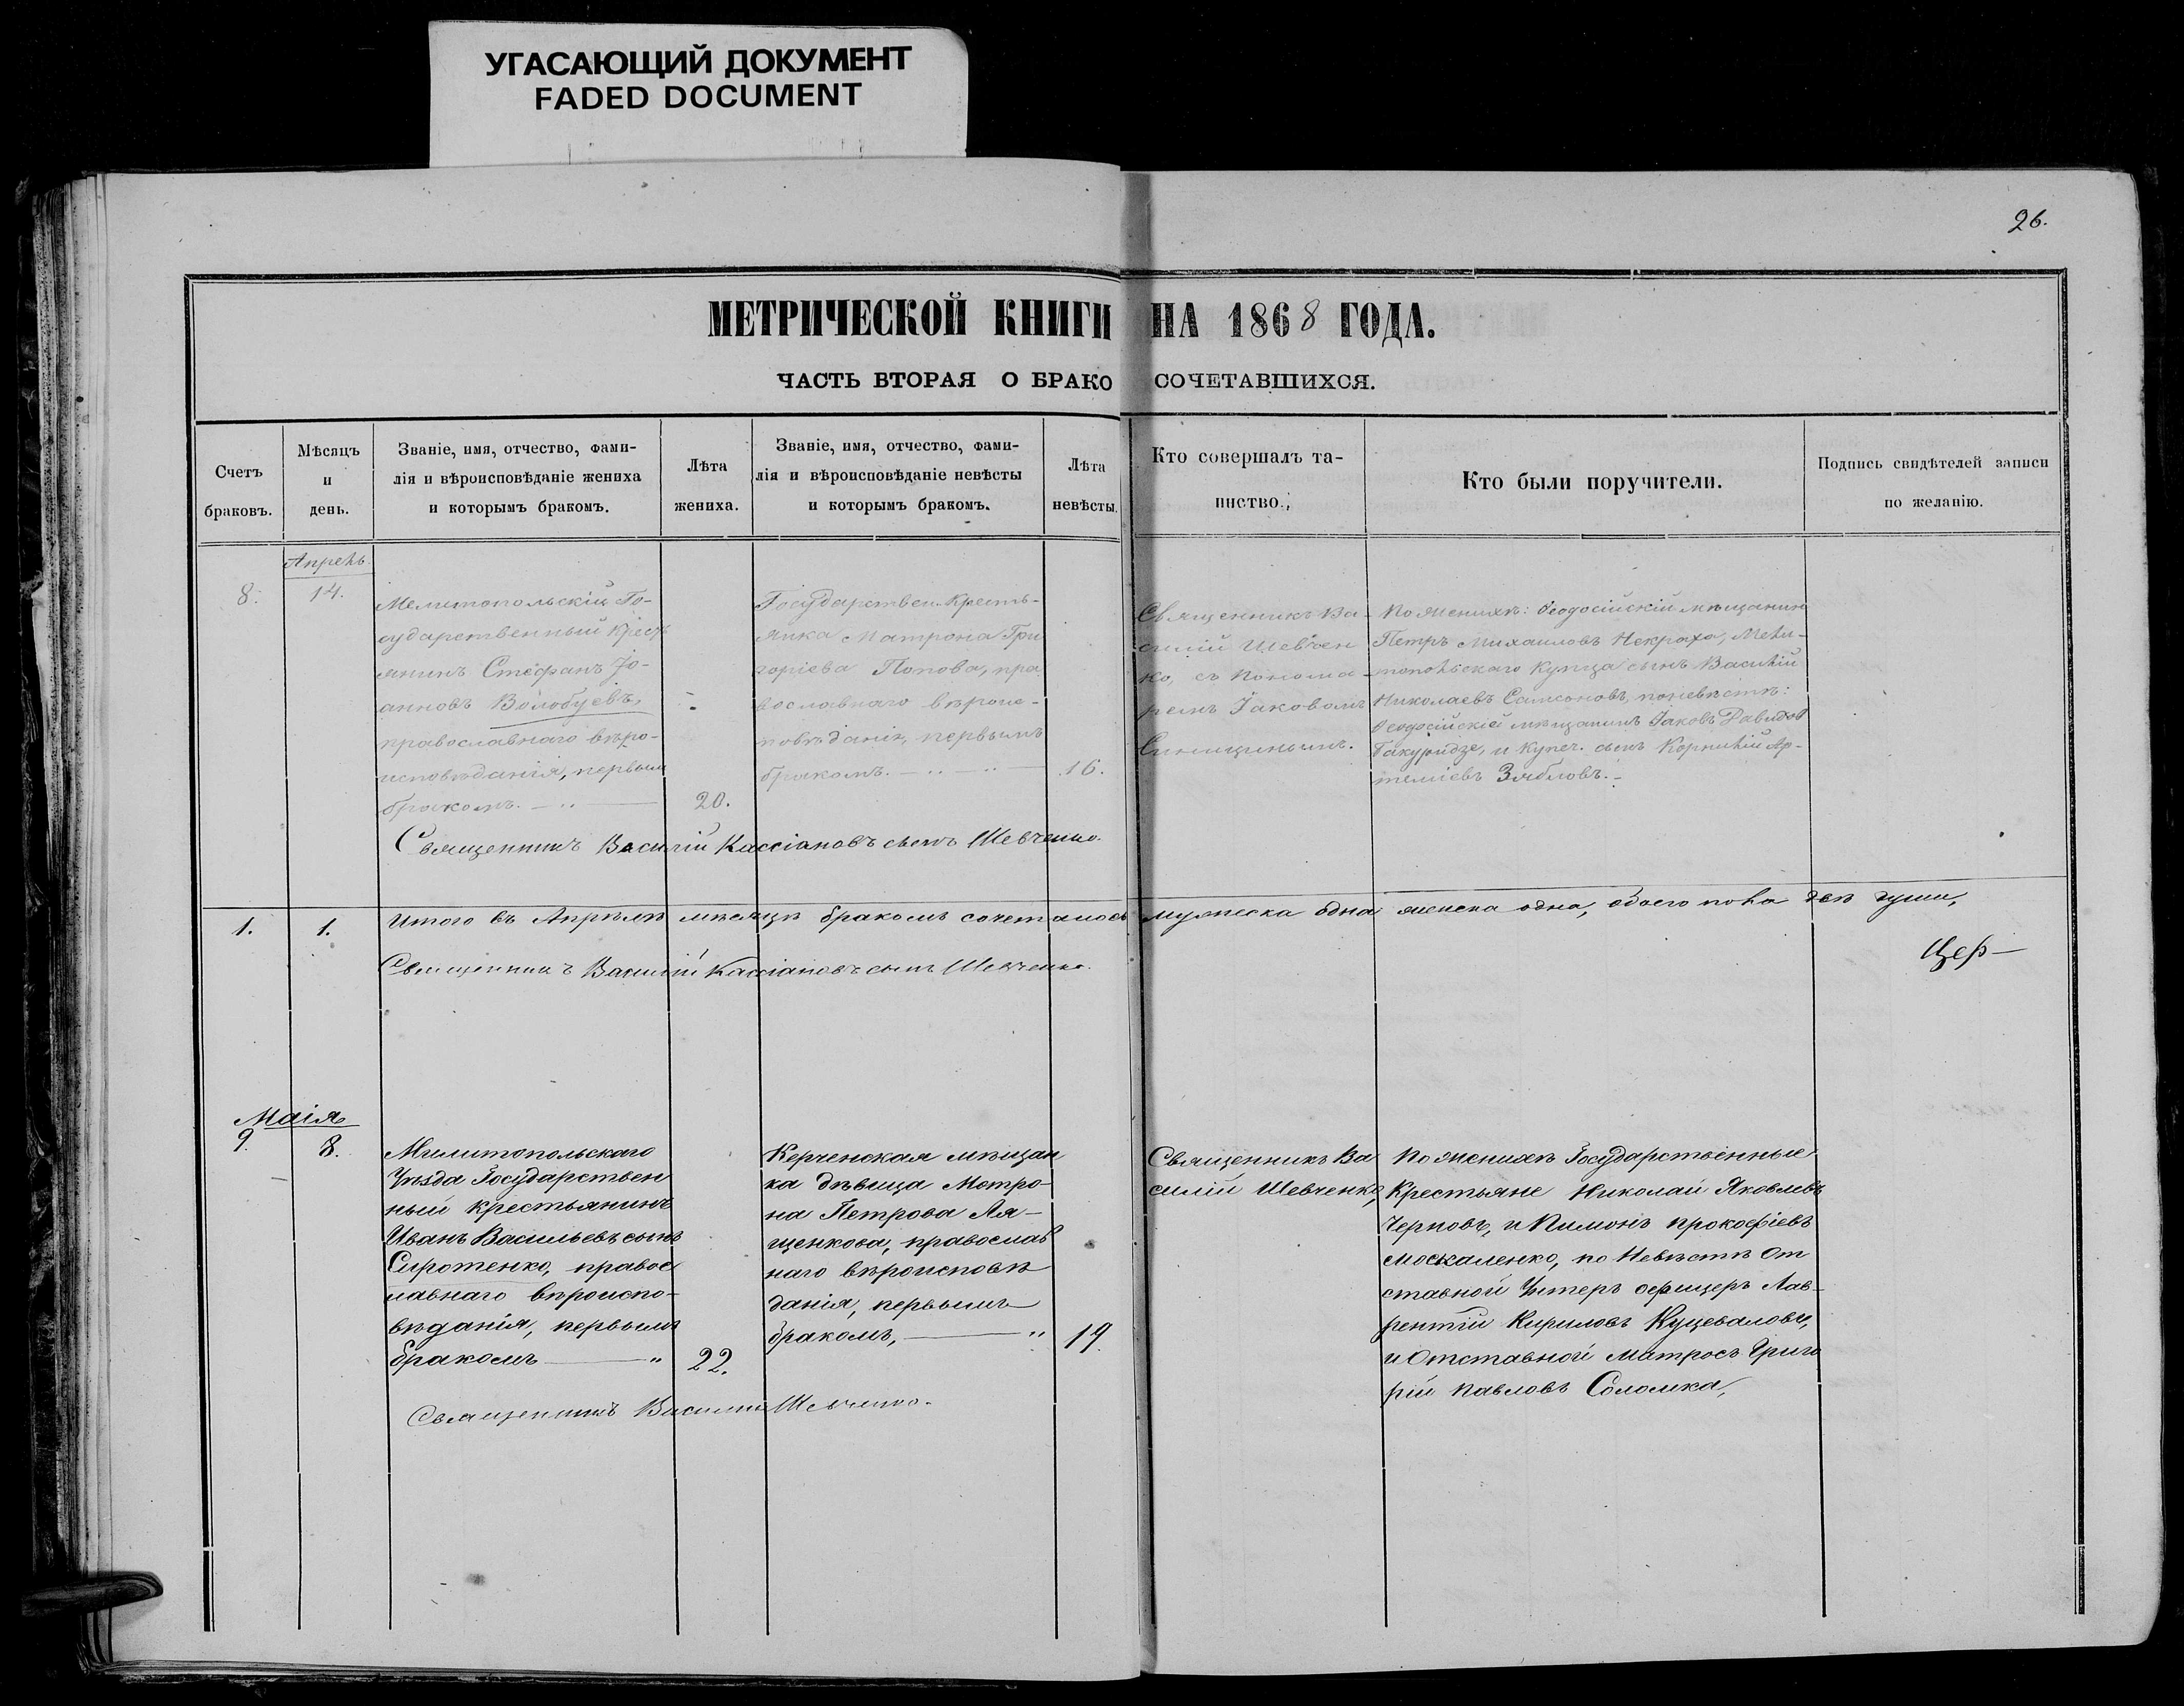 УГАСАЮЩИЙ ДОКУМЕНТ
FADED DOCUMENT
26.
МЕТРИЧЕСКОЙ КНИГИ НА 1868 ГОДА.
ЧАСТЬ ВТОРАЯ О БРАКОСОЧЕТАВШИХСЯ.
Счетъ
браковъ.
Мѣсяцъ
и
день.
Званіе, имя, отчество, фами-
лія и вѣроисповѣданіе жениха
и которымъ бракомъ.
Лѣта
жениха.
Званіе, имя, отчество, фами-
лія и вѣроисповѣданіе невѣсты
и которымъ бракомъ.
Лѣта
невѣсты.
Кто совершалъ та-
инство.
Кто были поручители.
Подпись свидѣтелей записи
по желанію.
Апрель
8.
14.
Мелитопольскій Го-
сударственный Крест
янинъ Стефанъ Іо-
анновъ Волобуевъ,
православнаго вѣро-
исповѣданія, первым
бракомъ.
20.
Государствен. Кресть-
янка Матрона Гри
горіева Попова, пра
вославнаго вѣроис-
повѣданія, первымъ
бракомъ.
16.
Священникъ Ва-
силій Шевчен
ко, съ Понома-
ремъ Іаковомъ
Синицинымъ.
По женихѣ: Ѳеодосійскій мѣщанинъ
Петръ Михаиловъ Некраха, Мели-
топольскаго Купца сынъ Василій
Николаевъ Самсоновъ, по невѣстѣ:
Ѳеодосійскій мѣщанинъ Іаковъ Давидов
Гакуридзе, и Купеч. сынъ Корнилій Ар-
теміевъ Зябловъ.
Священникъ Василій Кассіановъ сынъ Шевченко.
1.
1.
Итого въ Апрѣлѣ мѣсяцѣ бракомъ сочеталось мужеска одна женска одна, обоего пола двѣ души,
Священникъ Василій Кассіановъ сынъ Шевченко.
Цер-
Маія
9.
8.
Милитопольскаго
Уѣзда Государствен
ный крестьянинъ
Иванъ Васильевъ сынъ
Сиротенко, правос
лавнаго вѣроиспо-
вѣданія, первымъ
бракомъ
22.
Керченская мѣщан
ка дѣвица Матро-
на Петрова Ля-
щенкова, православ
наго вѣроисповѣ
данія, первымъ
бракомъ,
19.
Священникъ Ва
силій Шевченко,
По женихѣ Государственные
Крестьяне Николай Яковлевъ
Черновъ, и Пимонъ прокофіевъ
москаленко, по Невѣстѣ От
ставной Унтеръ офицеръ Лав-
рентій Кириловъ Куцеваловъ,
и Отставной матросъ Григо
рій Павловъ Соломка,
Священникъ Василій Шевченко.